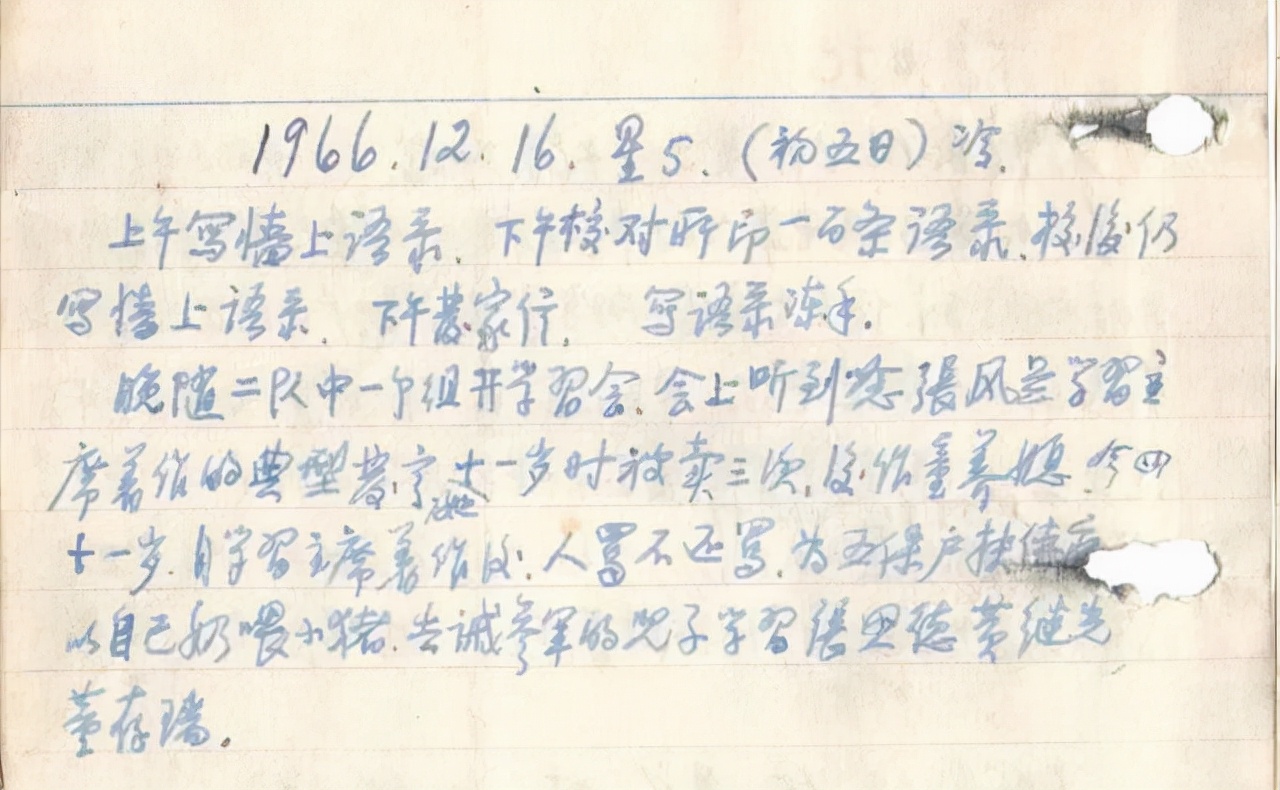 1966.12.16.星5.(初五日)冷.
上午写墙上语录.下午校对所印一百条语录.校后仍
写墙上语录.下午发家信.写语录冻手.
晚随二队中一个组开学习会.会上听到念張风兰学习主
席着作的典型发言.她十一岁时被卖三次.后作童养媳.今四
十一岁.自学习主席着作后.人骂不还骂.为五保户
以自己奶喂小猪.告诫参军的儿子学习張思德黄继光
董存瑞.